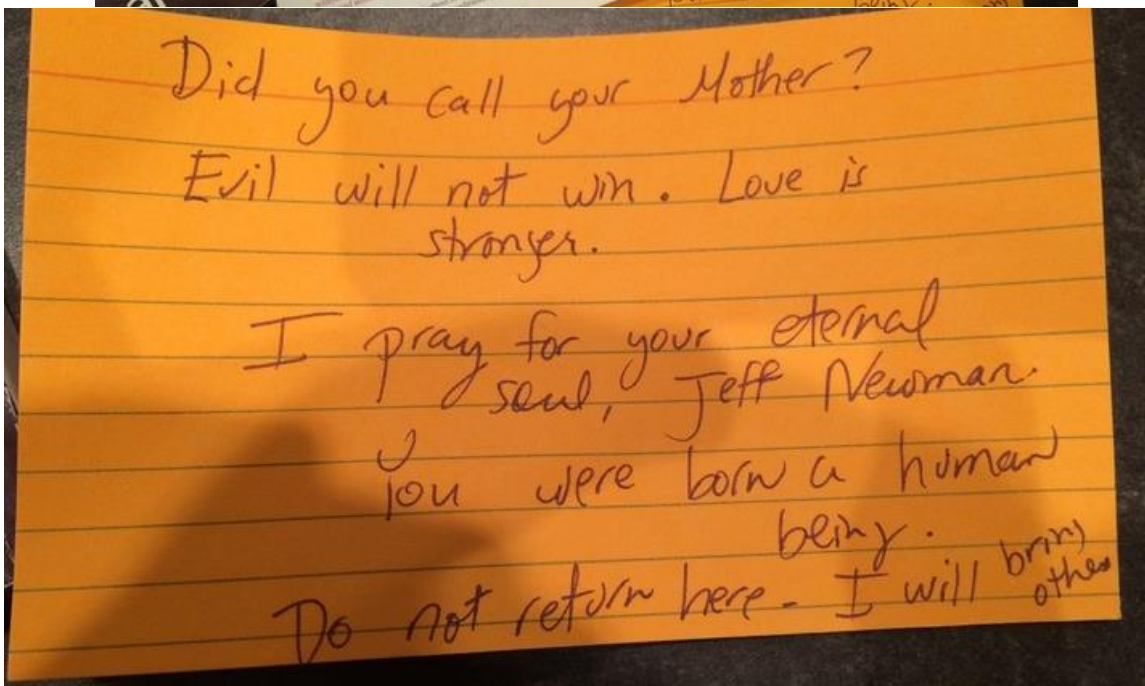 Did you call your Mother?
Evil will not win. Love is
stronger.
I pray for your eternal
soul, Jeff Newman.
You were born a human
being.
Do not return here - I will bring
other